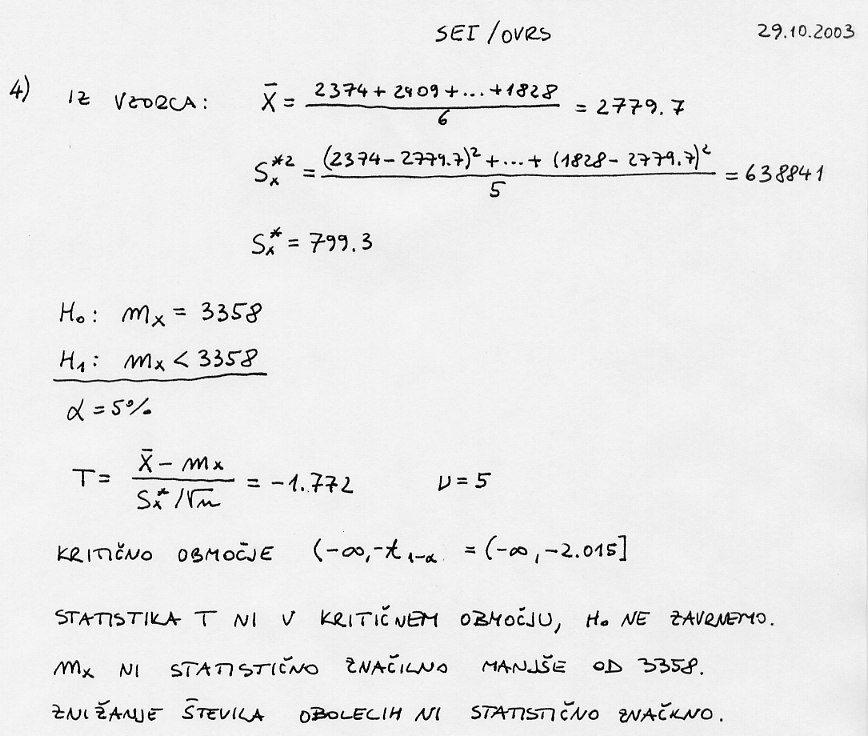 SEI/OVRS 29.10.2003
4) IZ VZORCA: X̄ = (2374 + 2409 + ... + 1828) / 6 = 2779.7
Sₓ*² = ((2374 - 2779.7)² + ... + (1828 - 2779.7)²) / 5 = 638841
Sₓ* = 799.3
H₀: mₓ = 3358
H₁: mₓ < 3358
α = 5%
T = (X̄ - mₓ) / (Sₓ*/√n) = -1.772 ν = 5
KRITIČNO OBMOČJE (-∞, -t₁₋α = (-∞, -2.015]
STATISTIKA T NI V KRITIČNEM OBMOČJU, H₀ NE ZAVRNEMO.
mₓ NI STATISTIČNO ZNAČILNO MANJŠE OD 3358.
ZNIŽANJE ŠTEVILA OBOLECIH NI STATISTIČNO ZNAČILNO.